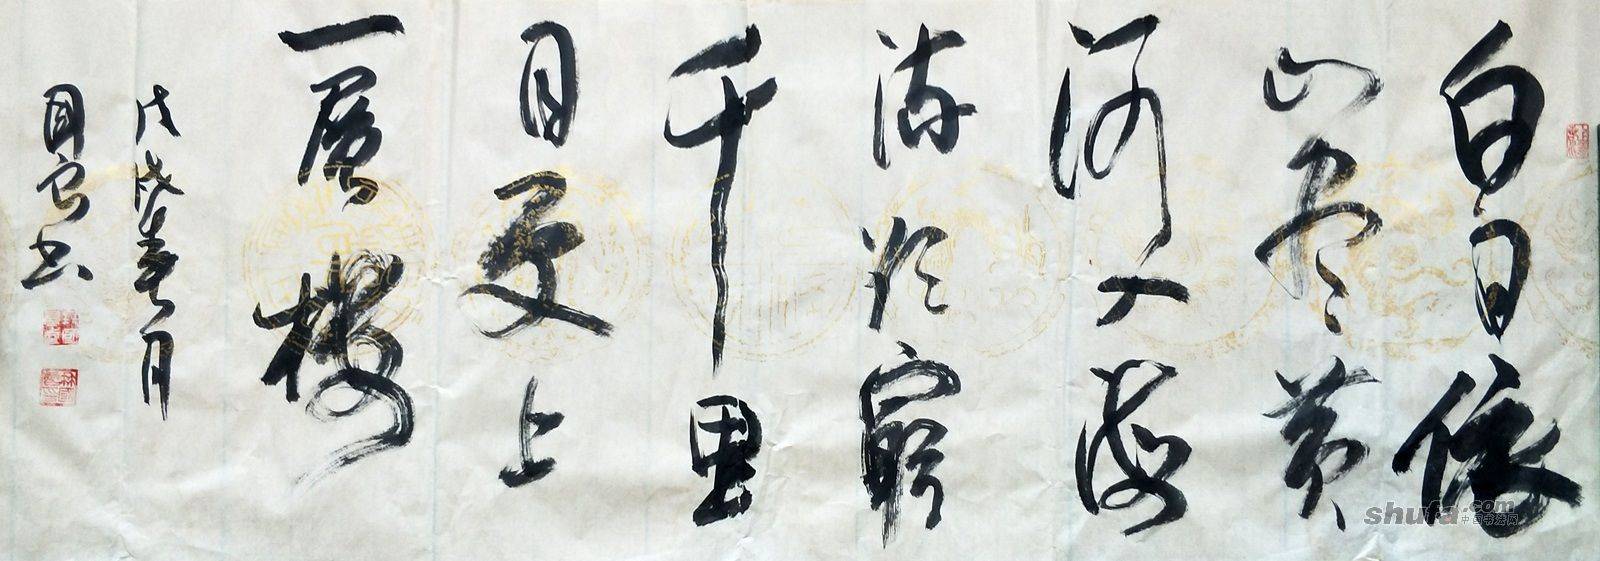 白日依
山尽黄
河入海
流欲穷
千里
目更上
一层楼
戊戌春月
国安书
shufa.com
中国书法网